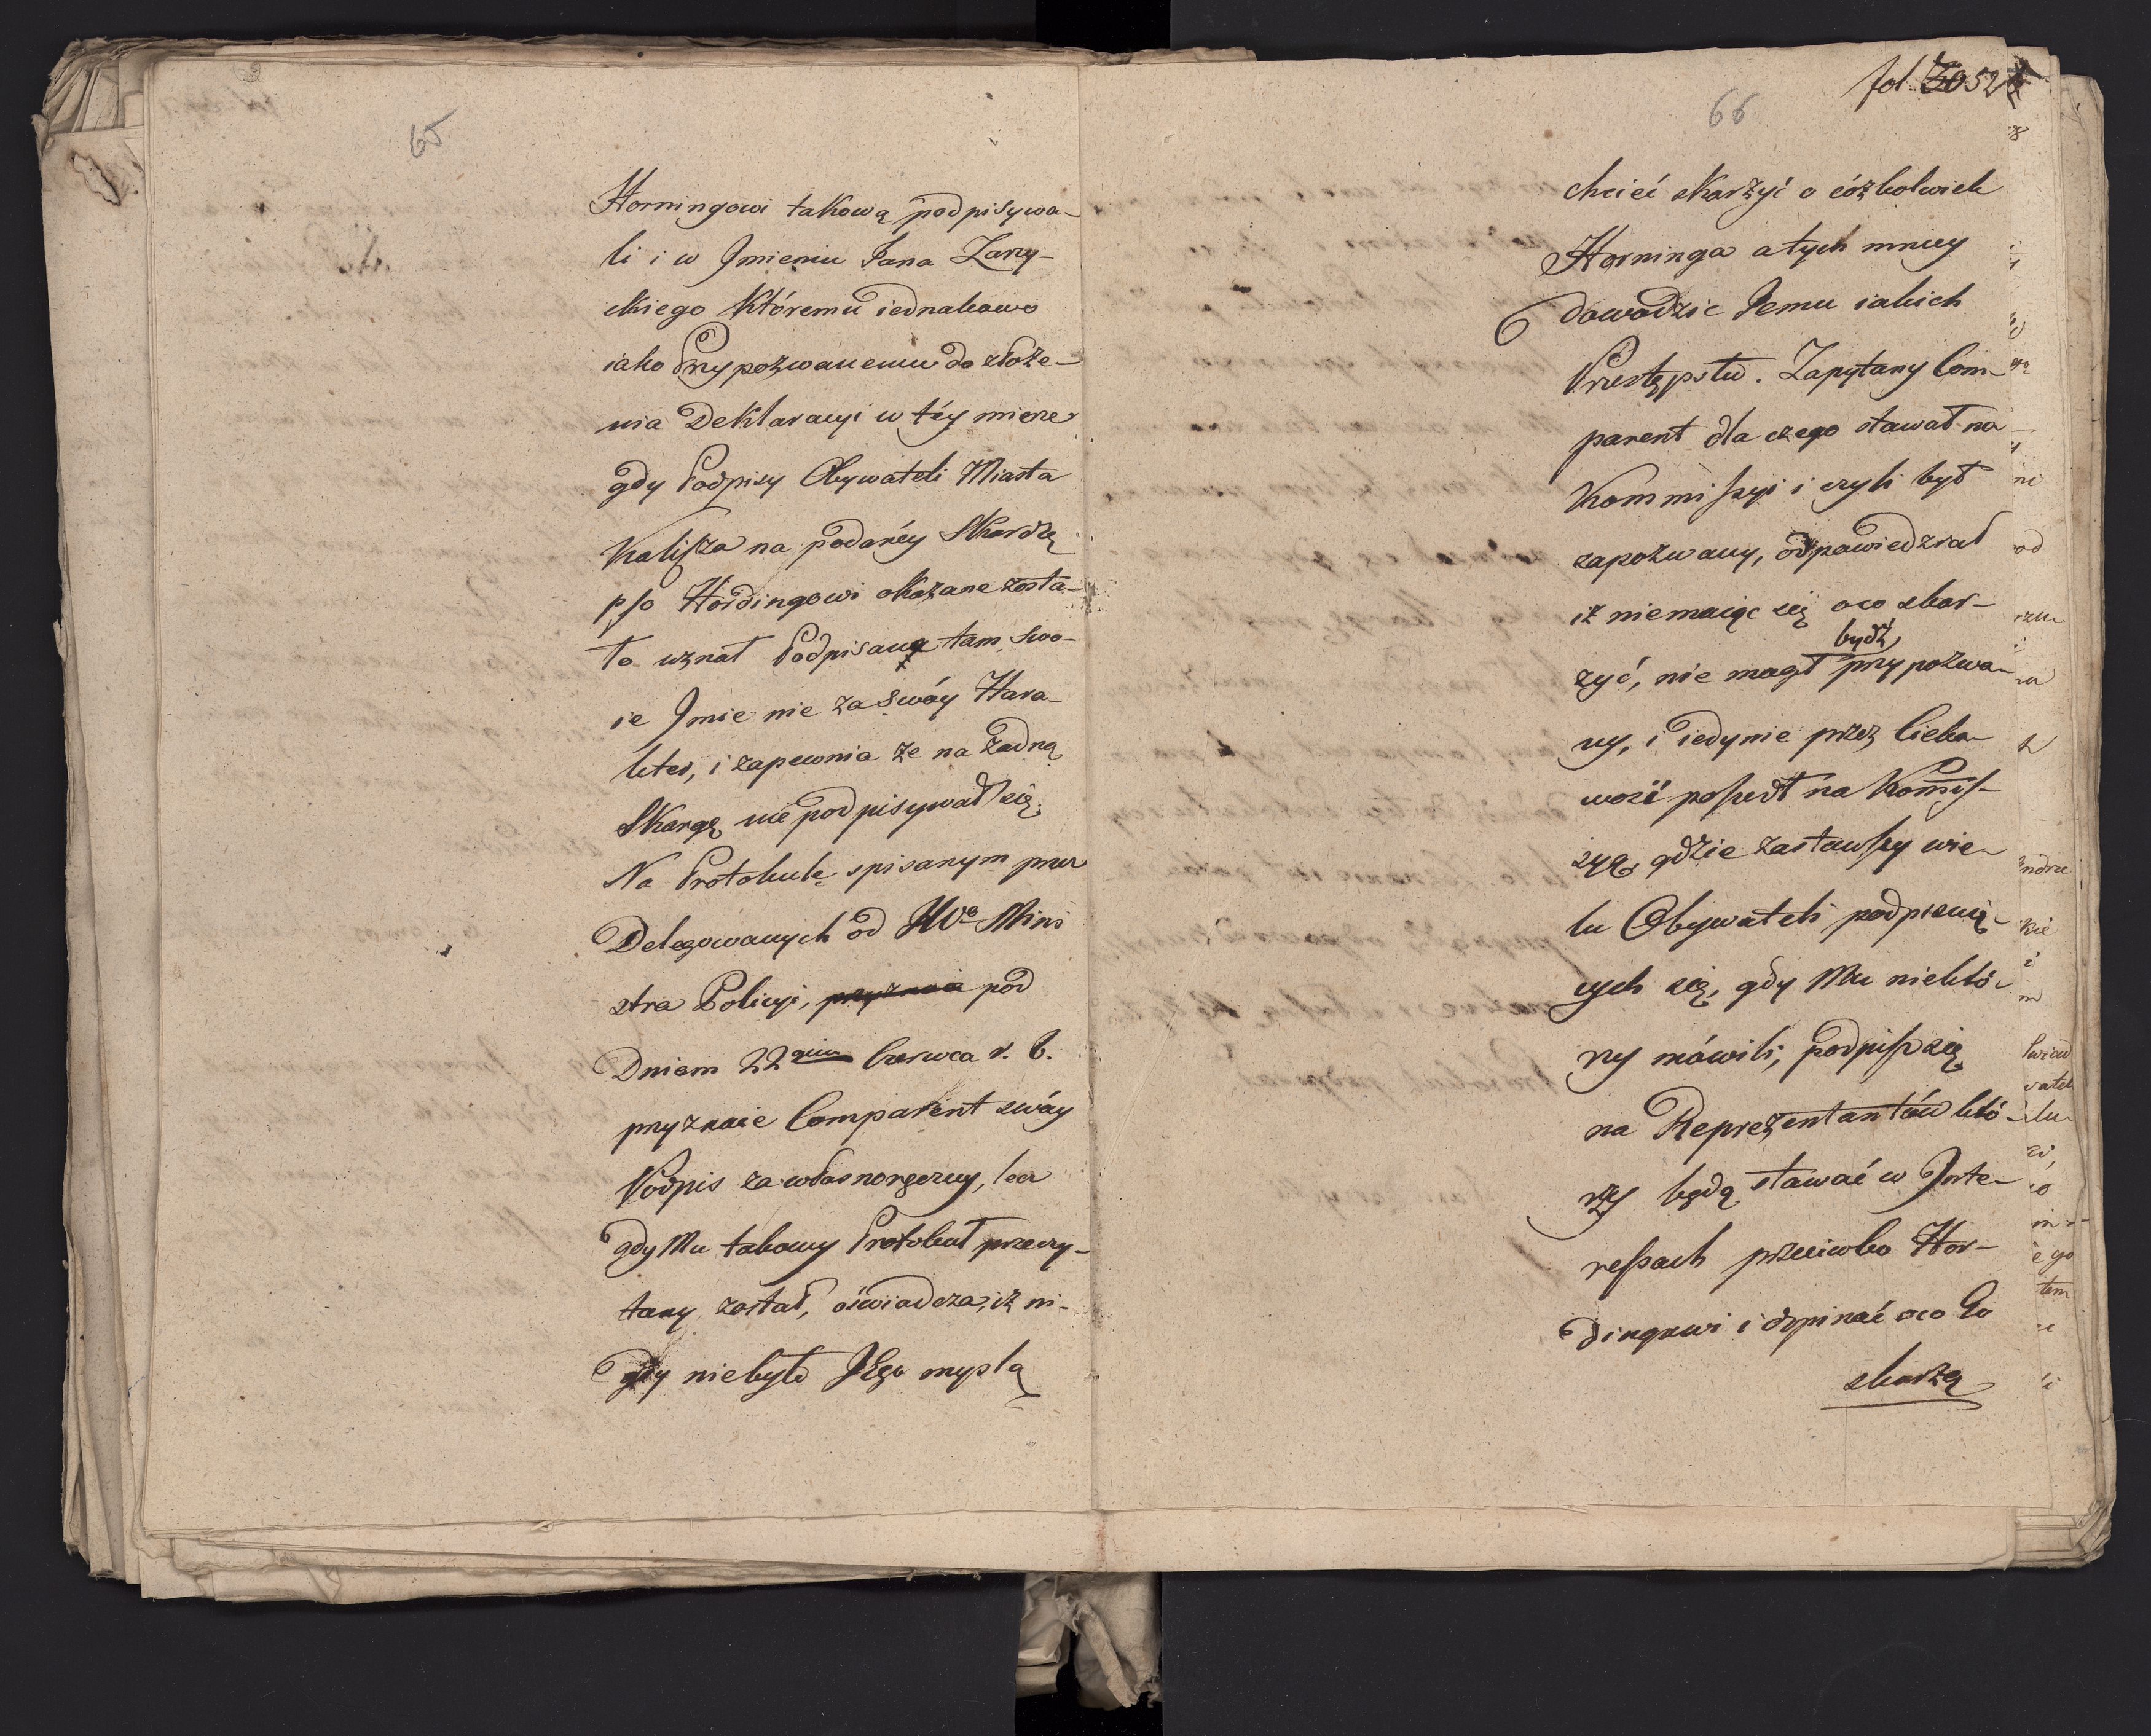 65
Horningowi takową podpisywa-
li i w Jmieniu Pana Zarzy-
ckiego Któremu iednakowo
iako Przypozwanemu do złoże-
nia Deklaracyi w téy mierze
gdy Podpisy Obywateli Miasta
Kalisza na podanéy Skardze
p/o Hordingowi okazane zosta-
ło uznał Podpisaną tam swo-
ie Jmie nie za swóy Hara-
kter, i zapewnia że na żadną
Skargę nie podpisywał się.
Na Protokule spisanym przez
Delegowanych od JWo Mini
stra Policyi, przyznaie pod
Dniem 22gim Czerwca r. b.
przyznaie Comparent swóy
Podpis za własnoręczny, lecz
gdy Mu takowy Protokuł przeczy-
tany został, oświadcza, iż ni-
gdy niebyło Jego myslą
fol 30 52
66
chcieć skarżyć o cóżkolwiek
Horninga a tych mniey
dowodzić Jemu iakich
Przestępstw. Zapytany Com-
parent dla czego stawał na
Kommissyi i czyli był
zapozwany, odpowiedział
iż niemaiąc się oco skar-
bydź
żyć, nie mógł przypozwa-
ny, i iedynie przez Cieka-
wość poszedł na Komis-
zyą, gdzie zastawszy wie-
lu Obywateli podpisuią-
cych się, gdy Mu niektó-
rzy mówili, podpisz się
na Reprezentantów któ-
rzy będą stawać w Jnte-
ressach przeciwko Hor-
dingowi i dopinać oco Go
skarżą